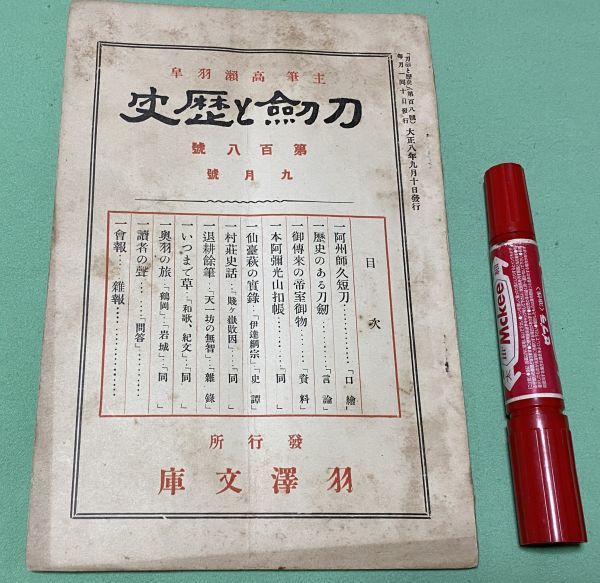 主筆高瀬羽皐
刀劒と歴史
第百八號
九月號
「刀劍と歴史」第百八號
毎月一回十日發行
大正八年九月十日發行
目次
一阿州師久短刀…………「口繪」
一歴史のある刀劒………「言論」
一御傳來の帝室御物……「資料」
一本阿彌光山扣帳………「同」
一仙臺萩の實錄…「伊達綱宗」「史譚」
一村莊史話…「賤ヶ嶽敗因」…「同」
一退耕餘筆…「天一坊の無智」「雜錄」
一いつまで草…「和歌、紀文」…「同」
一奥羽の旅…「鶴岡」…「岩城」…「同」
一讀者の聲…………「問答」…………
一會報………雜報…………
發行所
羽澤文庫
Mckee